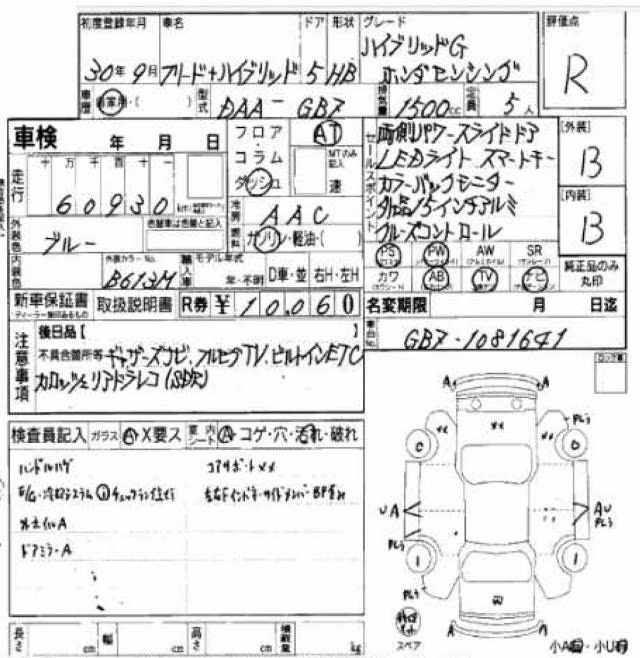 初度登録年月 車名 ドア 形状 グレード 評価点
30年9月 フリード+ハイブリッド 5 HB ハイブリッドG
ホンダセンシング R
車歴 自家用・( ) 型式 DAA-GB7 排気量 1500cc 定員 5人
車検 年 月 日
フロア・コラム・ダッシュ AT MTのみ記入 速
走行 十万千百十一 60930km
セールスポイント
両側パワースライドドア
LEDライト スマートキー
カラーバックモニター
外品15インチアルミ
クルーズコントロール
[外装] B
[内装] B
冷房 AAC
燃料 ガソリン・軽油・( )
外装色 ブルー 色替車は色替と記入
内装色 外装カラーNo. B613M
輸入車 モデル年式 年・不明 D車・並 右H・左H
PS PW AW SR
カワ AB TV ナビ
純正品のみ丸印
新車保証書 取扱説明書 R券 ¥10,060
名変期限 月 日迄
注意事項 後日品【 】
不具合箇所等 ギャザーズナビ.フルセグTV.ビルトインETC
カロッツェリアドラレコ(SD欠)
車台No. GB7-1081641
検査員記入 ガラス A・X要ス 内シート A コゲ・穴・汚れ・破れ
ハンドルハゲ コアサポートXX
外ホイルA
ドアミラーA
XX A A
XX XX
0 0
UA AU
1 1
W
スペア A A
小A 小U
長さ cm 幅 cm 高さ cm 積載量 kg